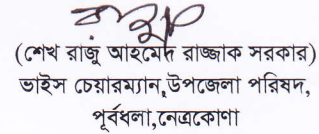 (শেখ রাজু আহমেদ রাজ্জাক সরকার)
ভাইস চেয়ারম্যান,উপজেলা পরিষদ,
পূর্বধলা,নেত্রকোণা